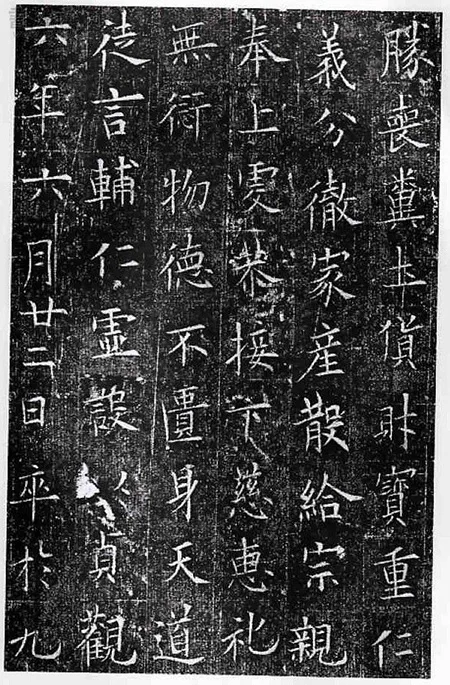 勝喪糞土貨財寶重仁
義分徹家産散給宗親
奉上虔恭接下慈惠礼
無衍物德不匱身天道
徒言輔仁虛設以貞觀
六年六月廿二日卒於九